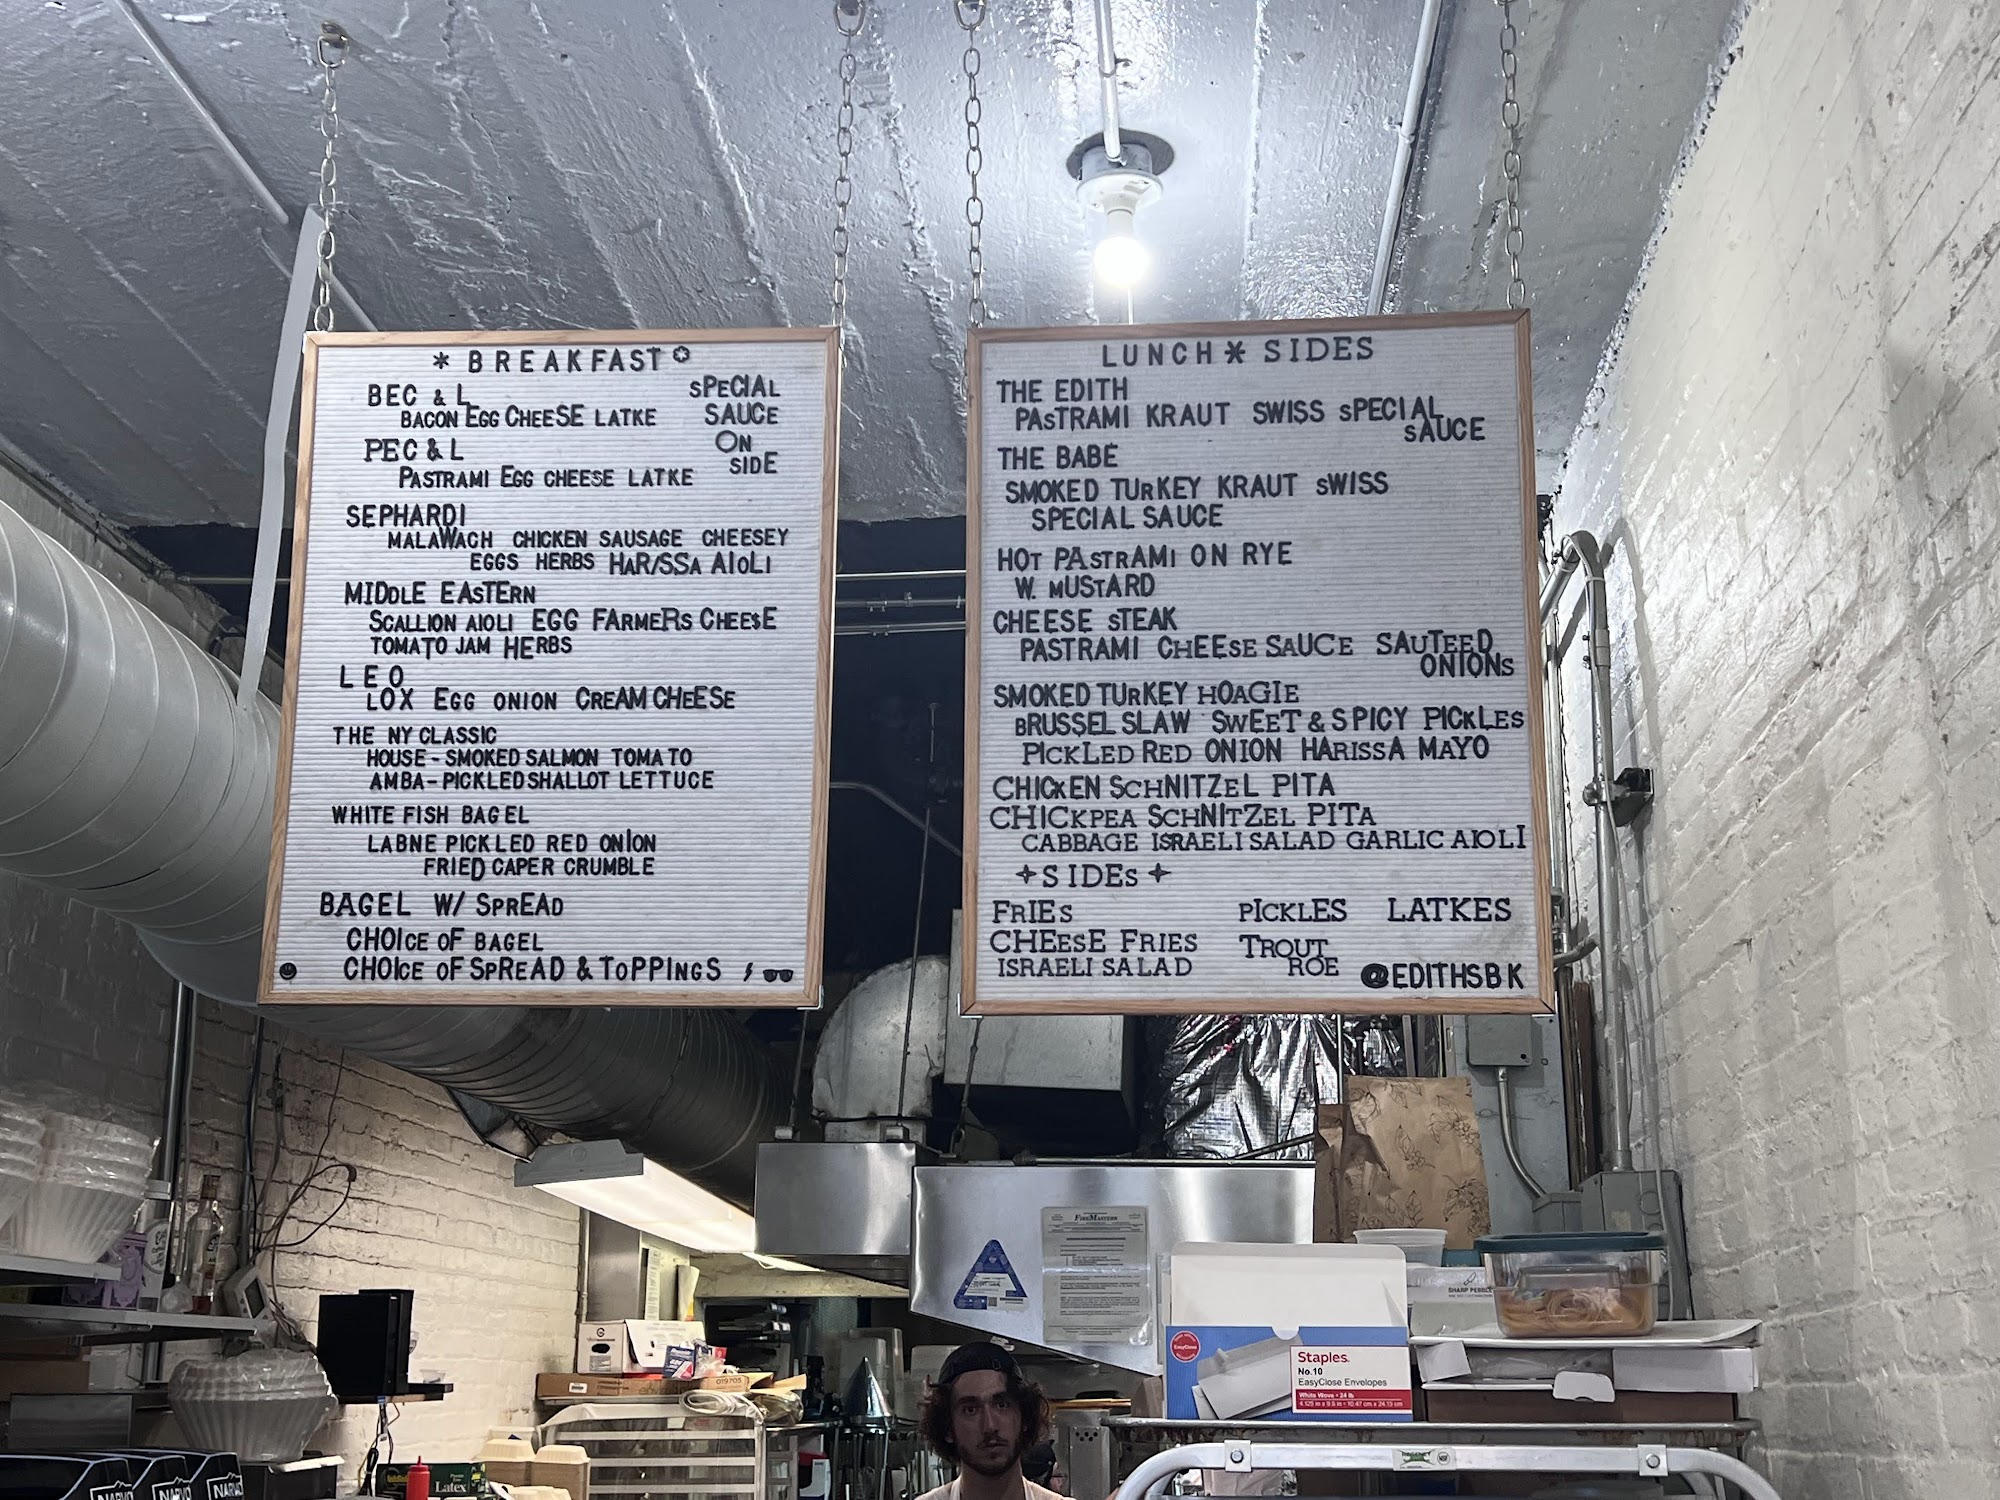 * BREAKFAST
BEC & L
BACON EGG CHEESE LATKE
SPECIAL
SAUCE
ON
SIDE
PEC & L
PASTRAMI EGG CHEESE LATKE
SEPHARDI
MALAWACH CHICKEN SAUSAGE CHEESEY
EGGS HERBS HARISSA AIOLI
MIDDLE EASTERN
SCALLION AIOLI EGG FARMERS CHEE$E
TOMATO JAM HERBS
LEO
LOX EGG ONION CREAM CHEESE
THE NY CLASSIC
HOUSE-SMOKED SALMON TOMATO
AMBA-PICKLED SHALLOT LETTUCE
WHITE FISH BAGEL
LABNE PICKLED RED ONION
FRIED CAPER CRUMBLE
BAGEL W/ SPREAD
CHOICE OF BAGEL
CHOICE OF SPREAD & TOPPINGS
LUNCH * SIDES
THE EDITH
PASTRAMI KRAUT SWISS SPECIAL
SAUCE
THE BABE
SMOKED TURKEY KRAUT SWISS
SPECIAL SAUCE
HOT PASTRAMI ON RYE
W. MUSTARD
CHEESE STEAK
PASTRAMI CHEESE SAUCE SAUTEED
ONIONS
SMOKED TURKEY HOAGIE
BRUSSEL SLAW SWEET & SPICY PICKLES
PICKLED RED ONION HARISSA MAYO
CHICKEN SCHNITZEL PITA
CHICKPEA SCHNITZEL PITA
CABBAGE ISRAELI SALAD GARLIC AIOLI
SIDES
FRIES PICKLES LATKES
CHEESE FRIES
TROUT
ROE
ISRAELI SALAD
@EDITHSBK
FIREMASTERS
SHARP PEBBLE
EasyClose
Staples.
No.10
EasyClose Envelopes
White Wove • 24 lb
4.125 in x 9.5 in • 10.47 cm x 24.13 cm
019705
Latex
NARVO
NARVO
NARVO